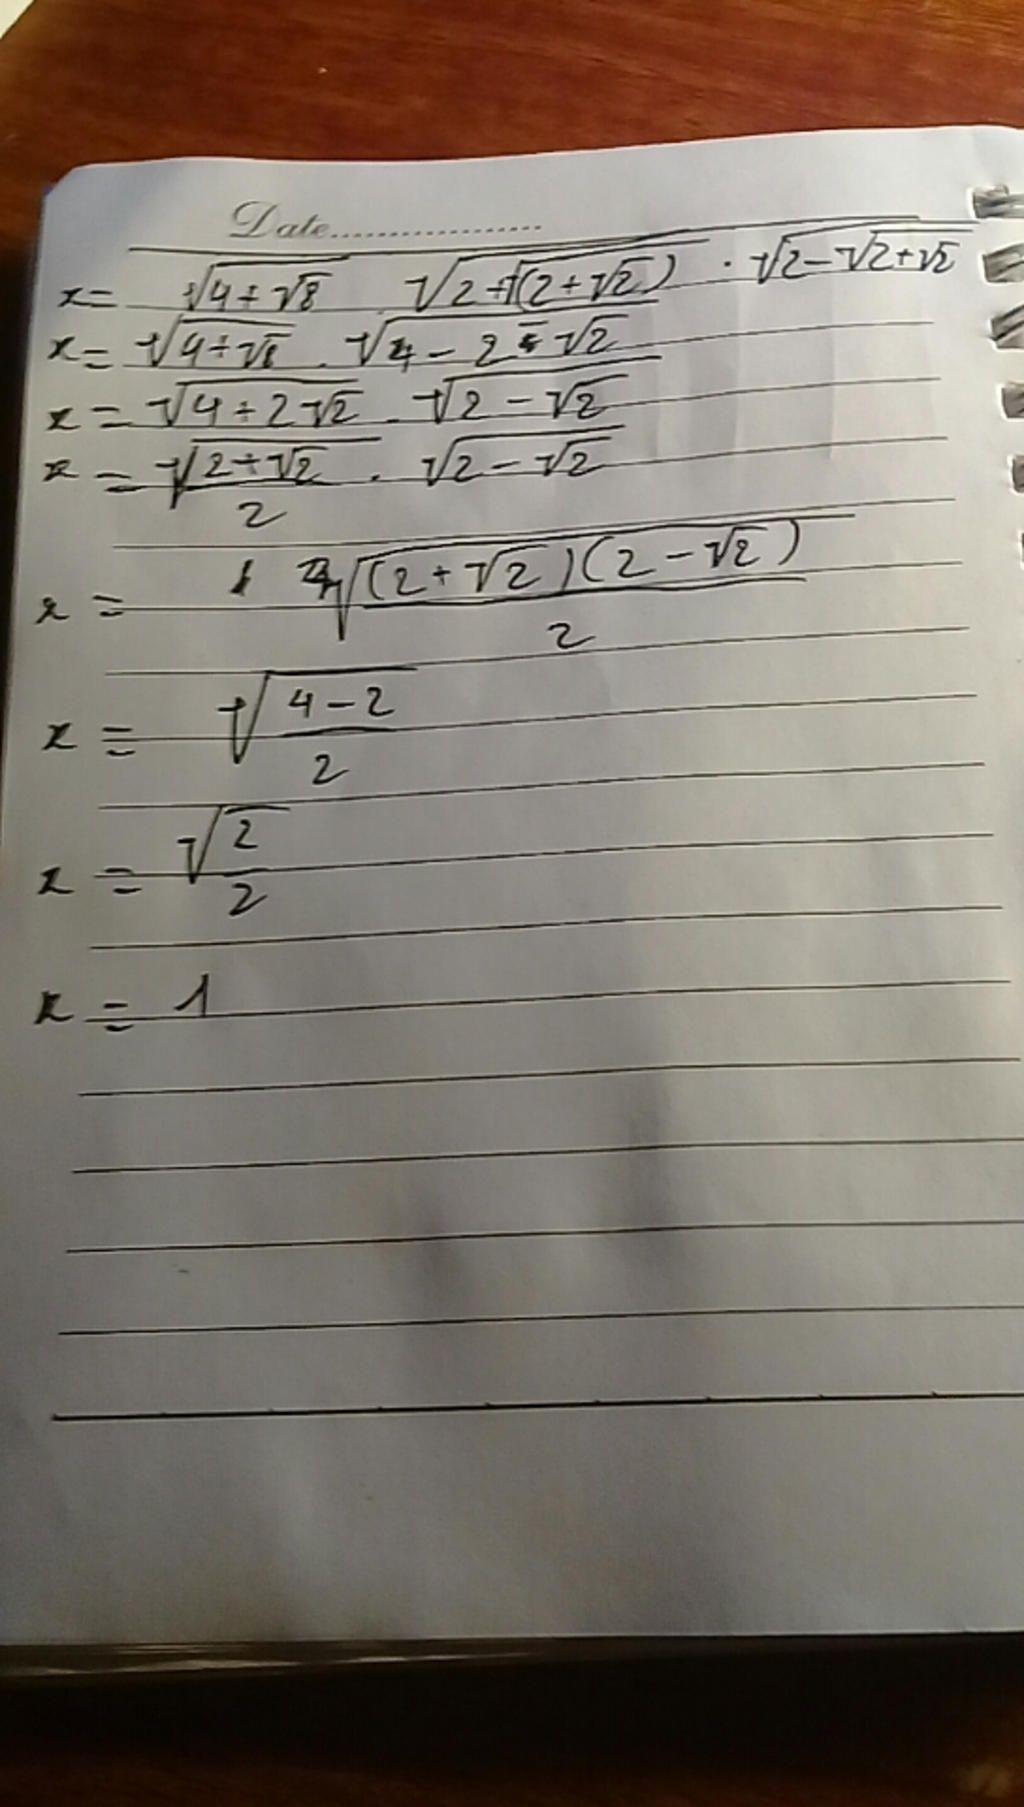 Date..................
x = √(4+√8) √(2+√(2+√2)) · √(2-√(2+√2))
x = √(4+√8) . √(4-2-√2)
x = √(4+2√2) . √(2-√2)
x = √(2+√2)/2 . √(2-√2)
x = √((2+√2)(2-√2)/2)
x = √((4-2)/2)
x = √(2/2)
x = 1